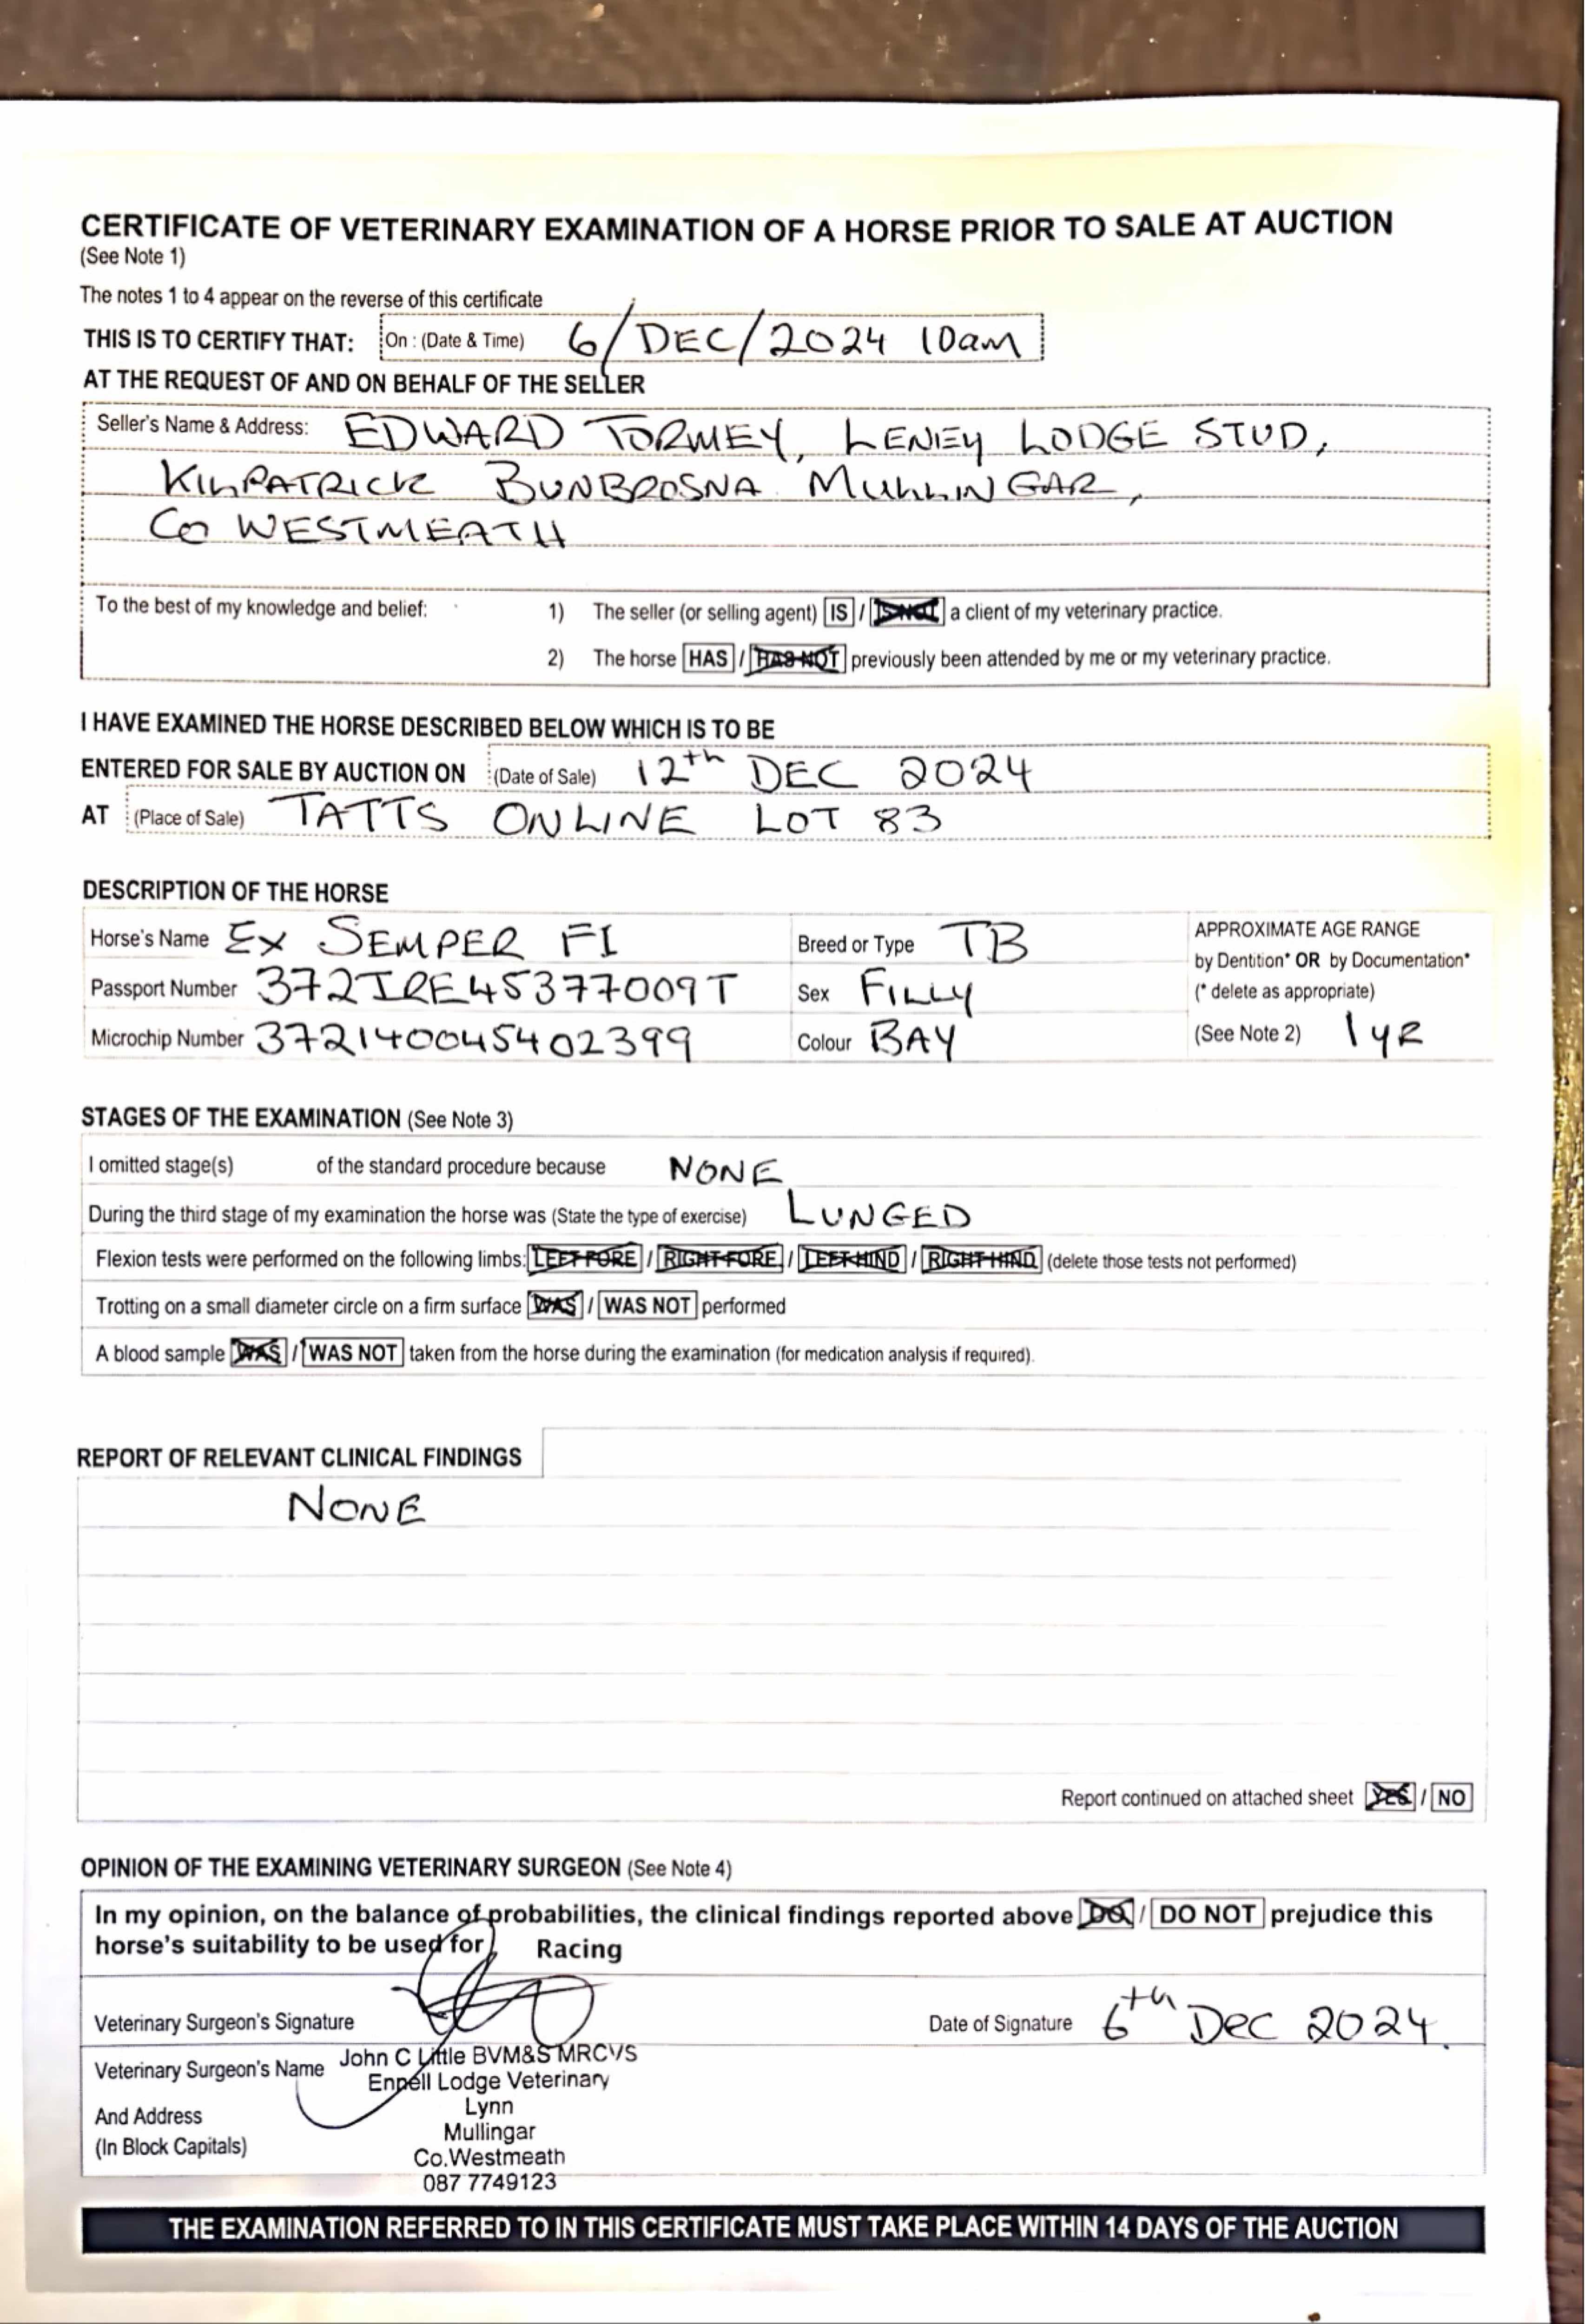 CERTIFICATE OF VETERINARY EXAMINATION OF A HORSE PRIOR TO SALE AT AUCTION
(See Note 1)
The notes 1 to 4 appear on the reverse of this certificate
THIS IS TO CERTIFY THAT: On : (Date & Time) 6/DEC/2024 10am
AT THE REQUEST OF AND ON BEHALF OF THE SELLER
Seller's Name & Address: EDWARD TORMEY, LENEY LODGE STUD,
KILPATRICK BUNBROSNA MULLINGAR,
CO WESTMEATH
To the best of my knowledge and belief: 1) The seller (or selling agent) IS / IS NOT a client of my veterinary practice.
2) The horse HAS / HAS NOT previously been attended by me or my veterinary practice.
I HAVE EXAMINED THE HORSE DESCRIBED BELOW WHICH IS TO BE
ENTERED FOR SALE BY AUCTION ON (Date of Sale) 12th DEC 2024
AT (Place of Sale) TATTS ONLINE LOT 83
DESCRIPTION OF THE HORSE
Horse's Name EX SEMPER FI Breed or Type TB APPROXIMATE AGE RANGE
by Dentition* OR by Documentation*
Passport Number 372IRE45377009T Sex FILLY (* delete as appropriate)
Microchip Number 372140045402399 Colour BAY (See Note 2) 1 YR
STAGES OF THE EXAMINATION (See Note 3)
I omitted stage(s) of the standard procedure because NONE
During the third stage of my examination the horse was (State the type of exercise) LUNGED
Flexion tests were performed on the following limbs: LEFT FORE / RIGHT FORE / LEFT HIND / RIGHT HIND (delete those tests not performed)
Trotting on a small diameter circle on a firm surface WAS / WAS NOT performed
A blood sample WAS / WAS NOT taken from the horse during the examination (for medication analysis if required).
REPORT OF RELEVANT CLINICAL FINDINGS
NONE
Report continued on attached sheet YES / NO
OPINION OF THE EXAMINING VETERINARY SURGEON (See Note 4)
In my opinion, on the balance of probabilities, the clinical findings reported above DO / DO NOT prejudice this
horse's suitability to be used for Racing
Veterinary Surgeon's Signature Date of Signature 6th Dec 2024.
Veterinary Surgeon's Name John C Little BVM&S MRCVS
Ennell Lodge Veterinary
And Address Lynn
(In Block Capitals) Mullingar
Co.Westmeath
087 7749123
THE EXAMINATION REFERRED TO IN THIS CERTIFICATE MUST TAKE PLACE WITHIN 14 DAYS OF THE AUCTION